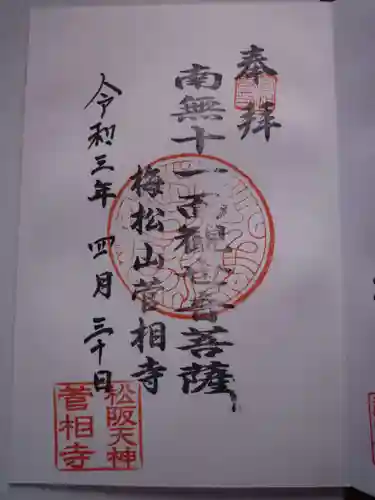 奉拝
南無十一面観世音菩薩
梅松山菅相寺
令和三年 四月 三十日
松阪天神
菅相寺